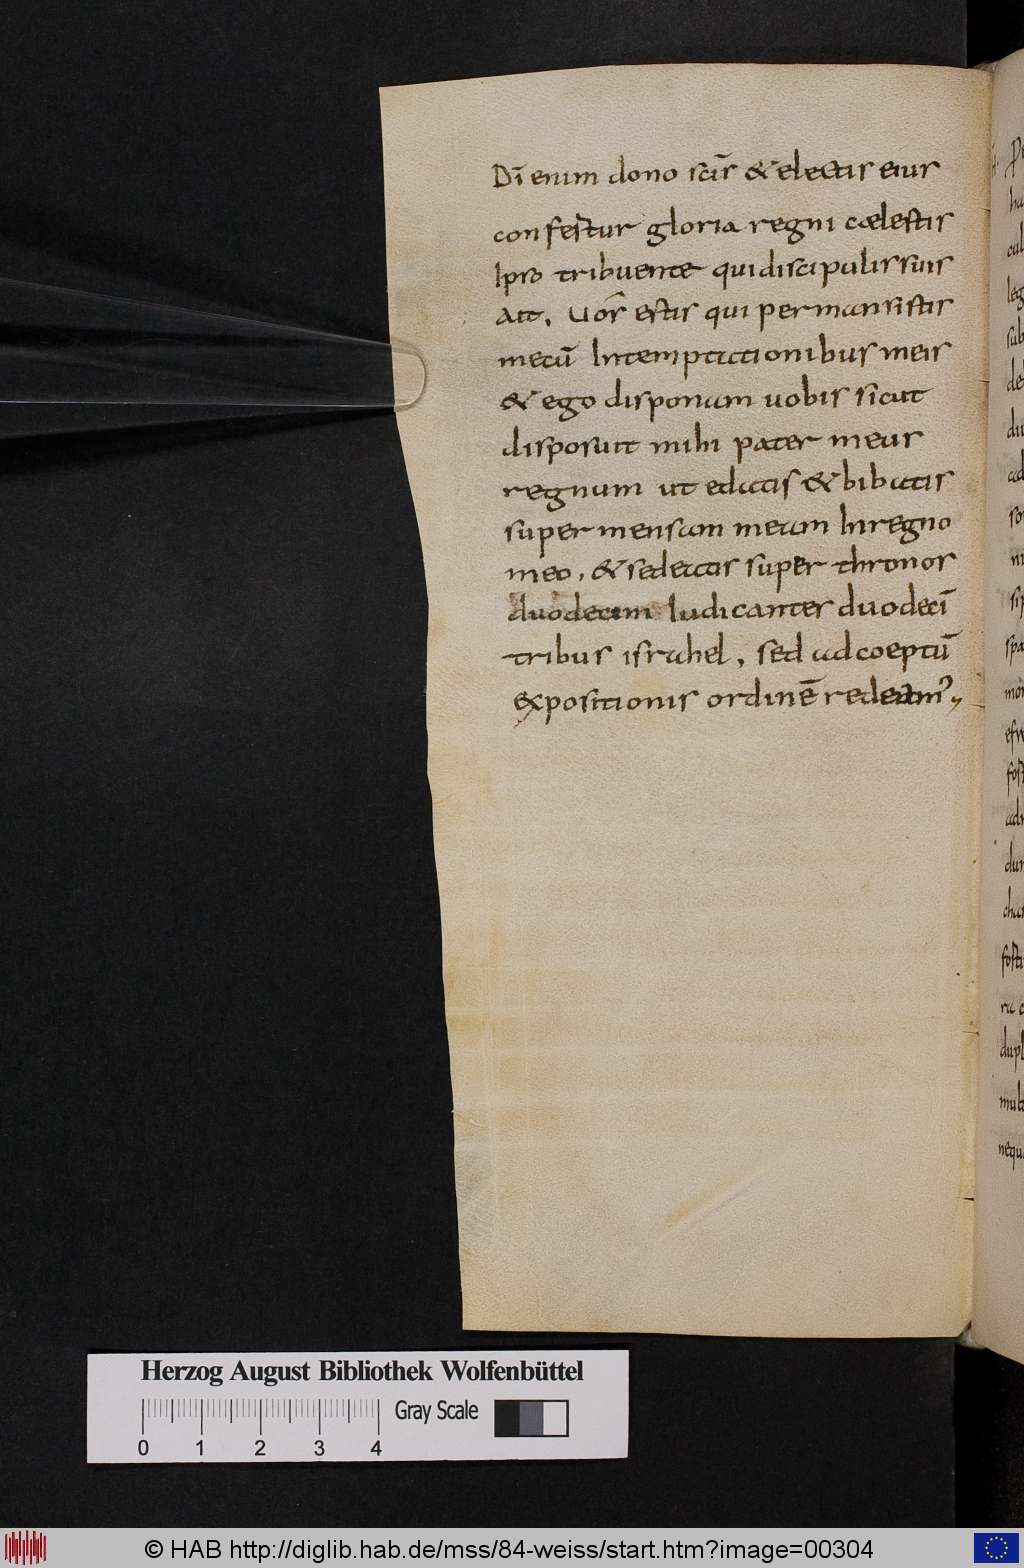 Dī enim dono scīs & electis eius
confertur gloria regni cælestis
Ipso tribuente qui discipulis suis
ait. Uos estis qui permansistis
mecū In temptationibus meis
& ego disponam uobis sicut
disposuit mihi pater meus
regnum ut edatis & bibatis
super mensam meam In regno
meo, & sedeatis super thronos
duodecim Iudicantes duodecī
tribus israhel, sed ad coeptū
expositionis ordinē redeam᾽
Herzog August Bibliothek Wolfenbüttel
Gray Scale
0 1 2 3 4
© HAB http://diglib.hab.de/mss/84-weiss/start.htm?image=00304